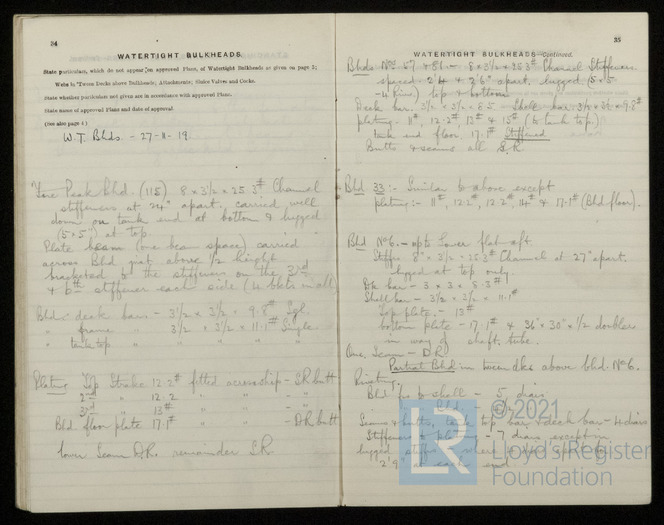 34
WATERTIGHT BULKHEADS.
State particulars, which do not appear on approved Plans, of Watertight Bulkheads as given on page 2;
Web in 'Tween Decks above Bulkheads; Attachments; Sluice Valves and Cocks.
State whether particulars not given are in accordance with approved Plans.
State name of approved Plans and date of approval
(See also page 4)
W.T. Bhds. - 27-11-19.
Fore Peak Bhd. (115) 8 x 3½ x 25.3# Channel
stiffeners at 24" apart, carried well
down on tank end at bottom & lugged
(5x5) at top.
Plate beam (one beam space) carried
across Bhd just above ½ height
bracketed to the stiffeners on the 3rd
& 6th stiffener each side (4 bkts in all)
Bhd:- deck bars - 3½ x 3½ x 9.8# Sgl.
" frame " 3½ x 3½ x 11.1# Single.
" tank top " " " " "
Plating Top Strake 12.2# fitted across ship - S.R. butt
2nd " 12.2 " " - "
3rd " 13# " " - "
Bhd. floor plate 17.1# " " - D.R. butt
lower Seam D.R. remainder S.R.
35
WATERTIGHT BULKHEADS—Continued.
Bhds Nos 57 & 81 - 8 x 3½ x 25.3# Channel Stiffeners
spaced 2'4 & 2'6" apart, lugged (5x5
- 4 Rivs) top & bottom
Deck bar. 3½ x 3½ x 8.5 Shell bar. 3½ x 3½ x 9.8#
plating - 11#, 12.2# 13# & 15# (to tank top.)
tank end floor 17.1# Stiffened
Butts & seams all S.R.
Bhd 33:- Similar to above except
plating:- 11#, 12.2#, 12.2#, 14# & 17.1# (Bhd floor).
Bhd No 6. - up to lower flat aft
Stiffrs 8" x 3½ x 25.3# Channel at 27" apart.
lugged at top only.
Dk bar - 3 x 3 x 8.3#
Shell bar - 3½ x 3½ x 11.1#
Top plate - 13#
bottom plate - 17.1# & 36" x 30" x ½ doublers
in way of shaft tube.
One Seam - D.R.
Partial Bhd in tween dks above bhd. No 6.
Riveting.
Bhd frs to shell - 5 diars.
Bhd
Seams & butts, tank top bar & deck bar - 4 diars
Stiffeners to plating - 7 diars except in
lugged stiffeners where
2'9" at each end
© 2021
LR
Lloyd's Register
Foundation